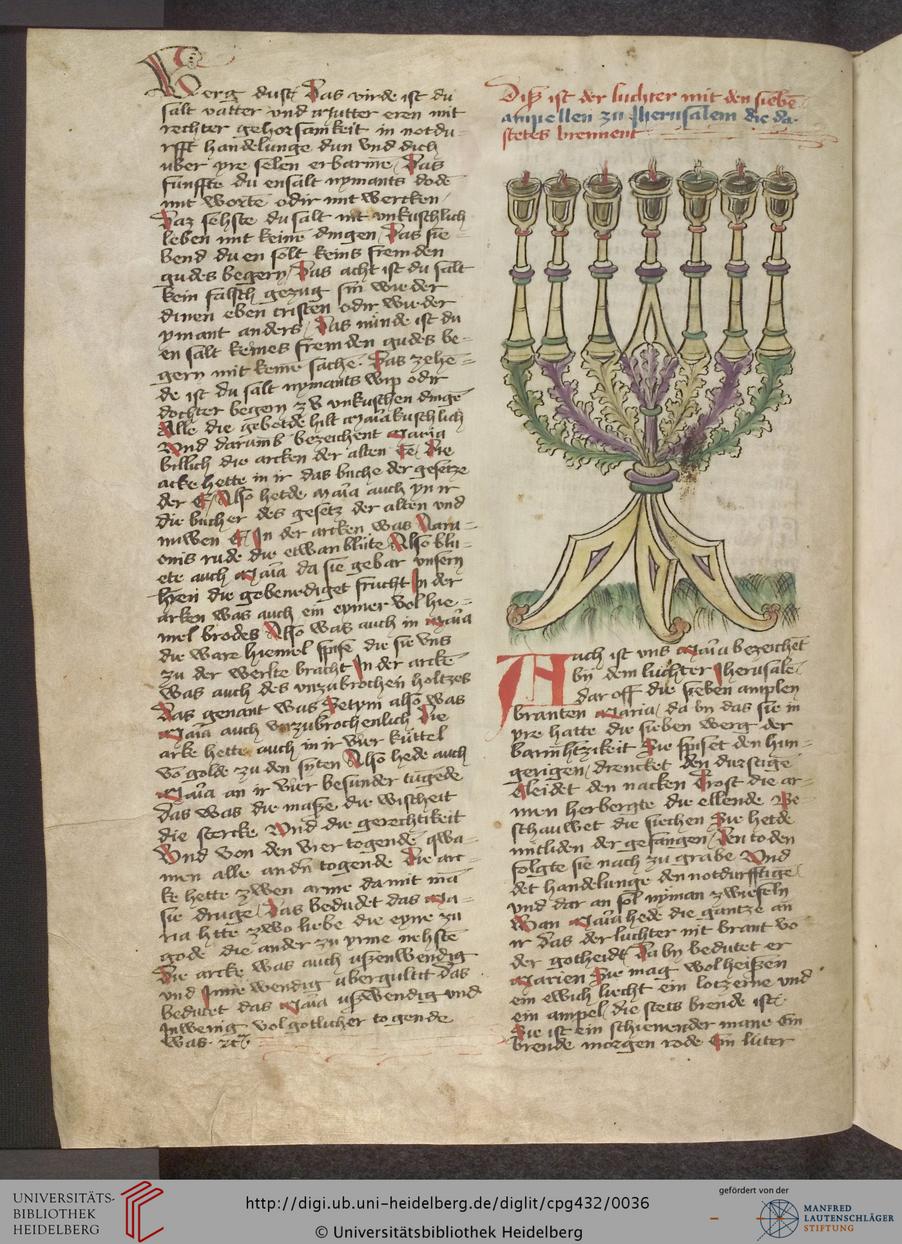 werg dust Das virde ist du
salt vatter vnd mutter eren mit
rechter gehorsamkeit in notdu-
rfft handelunge dun vnd dich
uber yre selen erbarme Das
funffte du ensalt nymants dode
mit worte odir mit wercken
Daz sehste du salt nit vnkuschlich
leben mit keine dingen Das sie-
bend du en solt keins fremden
gudes begern Das acht ist du salt
kein falsch gezug sin wieder
dinen eben cristen odir wieder
ymant anders Das nunde ist du
en salt keines fremden gudes be-
gern mit keine sache Das zehe-
de ist du salt nymants wip odir
dochter begern zu vnkuschen dinge
Alle die gebotde hilt maria kuschlich
Vnd darumb bezeichent maria
billich die arcken der alten Ee Die
arke hette in ir das buche der gesetze
der E Also hetde maria auch yn ir
die bucher des gesetz der alten vnd
nuwen E In der arcken was Aara-
onis rude die etwan blute Also blu-
ete auch Maria da sie gebar vnsern
hren die gebenediget frucht In der
arken was auch ein eymer vol hie-
mel brodes Also was auch in Maria
die ware hiemel spise die sie vns
zu der werlte bracht In der arcke
was auch des vnzubrochein holtzes
Das genant was Setym also was
Maria auch vnzubrochenlich Die
arke hette auch in ir vier kuttel
vo golde zu den syten Also hede auch
Maria an ir vier besunder tugede
das was die masze die wischeit
die stercke Vnd die gerechtikeit
Vnd von den vier togende qwa-
men alle andn togende Die arc-
ke hette zwen arme da mit ma
sie druge Das bedudet das Ma-
ria hette zwo liebe die eyne zu
gode die ander zu yrme nehste
Die arcke was auch uszenwendig
vnd Inne wendig ubergultt das
bedutet das Maria uszwendig vnd
Inwenig vol gotlicher togende
was rc
Disz ist der luchter mit den sieben
ampellen zu Jherusalem die da
stetes brennent
Auch ist vns Maria bezeichet
by dem luchter Jherusale
dar off die sieben amplen
branten Maria da by das sie in
yre hatte die sieben werg der
barmhtzikeit Sie spiset den hun-
gerigen drencket den durstige
Cleidet den nacken Trost die ar-
men herbergte die ellende Be-
schauwet die siechen Sie hetde
mitliden der gefangen Den toden
folgte sie nach zu grabe Vnd
det handelunge den notdurfftige
vnd dar an sol nyman zwiefeln
Wan Maria hede die gantze an
ir das der luchter nit brant vo
der gotheidt Da by bedutet er
Marien Sie mag wol heiszen
ein ewich liecht ein lotzerne vnd
ein ampel die stets brende ist
Sie ist ein schienender mane Ein
brende morgen rode Ein luter
UNIVERSITÄTS-
BIBLIOTHEK
HEIDELBERG
http://digi.ub.uni-heidelberg.de/diglit/cpg432/0036
© Universitätsbibliothek Heidelberg
gefördert von der
MANFRED
LAUTENSCHLÄGER
STIFTUNG